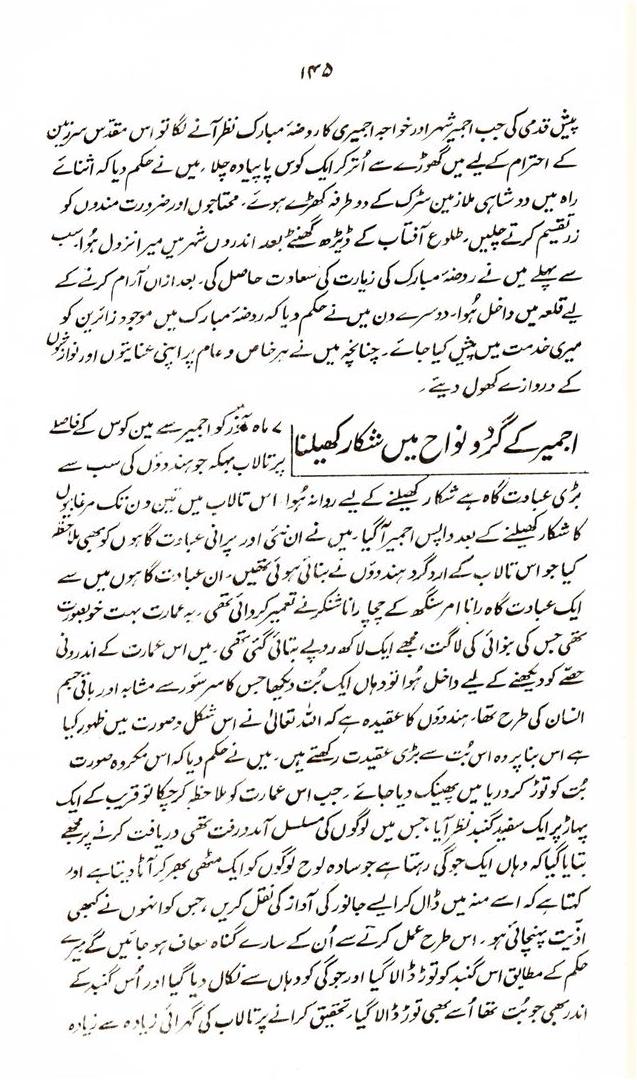 ۱۴۵
پیش قدمی کی جب اجمیر شہر اور خواجہ اجمیری کا روضۂ مبارک نظر آنے لگا تو اس مقدس سرزمین
کے احترام کے لیے میں گھوڑے سے اُتر کر ایک کوس پا پیادہ چلا، میں نے حکم دیا کہ اثنائے
راہ میں دو شاہی ملازمین سڑک کے دو طرفہ کھڑے ہوئے، محتاجوں اور ضرورت مندوں کو
زر تقسیم کرتے چلیں۔ طلوع آفتاب کے ڈیڑھ گھنٹے بعد اندرون شہر میں میرا نزول ہُوا، سب
سے پہلے میں نے روضۂ مبارک کی زیارت کی سعادت حاصل کی۔ بعد ازاں آرام کرنے کے
لیے قلعہ میں داخل ہُوا۔ دوسرے دن میں نے حکم دیا کہ روضۂ مبارک میں موجود زائرین کو
میری خدمت میں پیش کیا جائے۔ چنانچہ میں نے ہر خاص و عام پر اپنی عنایتوں اور نوازشوں
کے دروازے کھول دیئے۔
اجمیر کے گرد و نواح میں شکار کھیلنا
۷ ماہ کو اجمیر سے مین کوس کے فاصلے
پر تالاب بہکہ جو ہندوؤں کی سب سے
بڑی عبادت گاہ ہے شکار کھیلنے کے لیے روانہ ہُوا اس تالاب میں تین دن تک مرغابیوں
کا شکار کھیلنے کے بعد واپس اجمیر آگیا، میں نے ان نئی اور پرانی عبادت گاہوں کو بھی ملاحظہ
کیا جو اس تالاب کے اردگرد ہندوؤں نے بنائی ہوئی تھیں۔ ان عبادت گاہوں میں سے
ایک عبادت گاہ رانا امر سنگھ کے چچا رانا شنکر نے تعمیر کروائی تھی، یہ عمارت بہت خوبصورت
تھی جس کی بنوائی کی لاگت، مجھے ایک لاکھ روپے بتائی گئی تھی۔ میں اس عمارت کے اندرونی
حصّے کو دیکھنے کے لیے داخل ہُوا تو وہاں ایک بُت دیکھا جس کا سر سؤر سے مشابہ اور باقی جسم
انسان کی طرح تھا۔ ہندوؤں کا عقیدہ ہے کہ اللہ تعالیٰ نے اس شکل و صورت میں ظہور کیا
ہے اس بنا پر وہ اس بُت سے بڑی عقیدت رکھتے ہیں، میں نے حکم دیا کہ اس مکروہ صورت
بُت کو توڑ کر دریا میں پھینک دیا جائے۔ جب اس عمارت کو ملاحظہ کر چکا تو قریب کے ایک
پہاڑ پر ایک سفید گنبد نظر آیا، جس میں لوگوں کی مسلسل آمد و رفت تھی دریافت کرنے پر مجھے
بتایا گیا کہ وہاں ایک جوگی رہتا ہے جو سادہ لوح لوگوں کو ایک مٹھی بھر کر آٹا دیتا ہے اور
کہتا ہے کہ اسے منہ میں ڈال کر ایسے جانور کی آواز کی نقل کریں، جس کو انہوں نے کبھی
اذیت پہنچائی ہو۔ اس طرح عمل کرنے سے اُن کے سارے گناہ معاف ہو جائیں گے میرے
حکم کے مطابق اس گنبد کو توڑ ڈالا گیا اور جوگی کو وہاں سے نکال دیا گیا اور اُس گنبد کے
اندر بھی جو بُت تھا اُسے بھی توڑ ڈالا گیا، تحقیق کرانے پر تالاب کی گہرائی زیادہ سے زیادہ